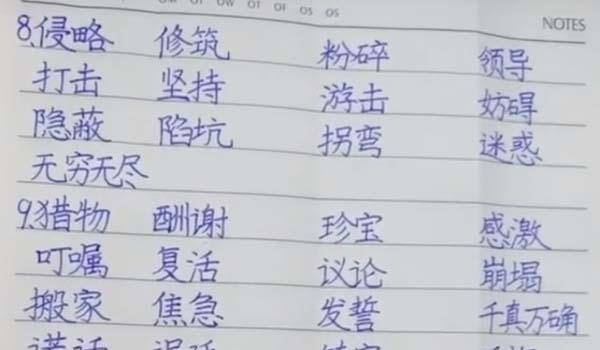 NOTES
8.侵略 修筑 粉碎 领导
打击 坚持 游击 妨碍
隐蔽 陷坑 拐弯 迷惑
无穷无尽
9.猎物 酬谢 珍宝 感激
叮嘱 复活 议论 崩塌
搬家 焦急 发誓 千真万确